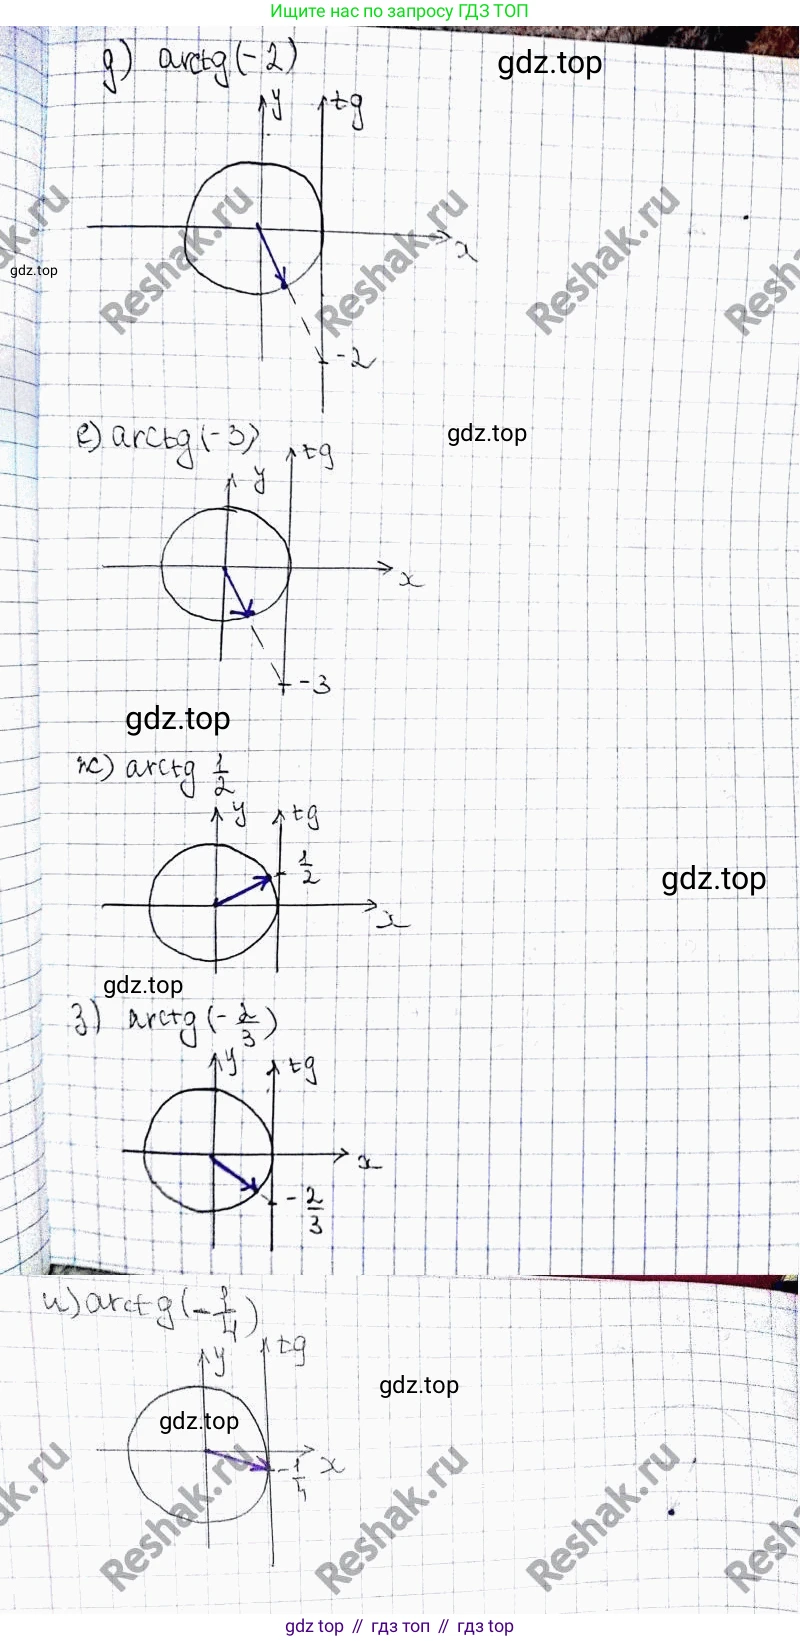 Ищите нас по запросу ГДЗ ТОП
д) arctg(-2)
gdz.top
y
tg
x
Reshak.ru
Reshak.ru
Reshak.ru
Reshak.ru
gdz.top
-2
е) arctg(-3)
gdz.top
tg
y
x
-3
gdz.top
ж) arctg 1/2
y
tg
1/2
gdz.top
x
gdz.top
з) arctg(-2/3)
y
tg
x
-2/3
и) arctg(-1/4)
tg
y
gdz.top
gdz.top
x
-1/4
Reshak.ru
Reshak.ru
Reshak.ru
Reshak.ru
gdz top // гдз топ // gdz top